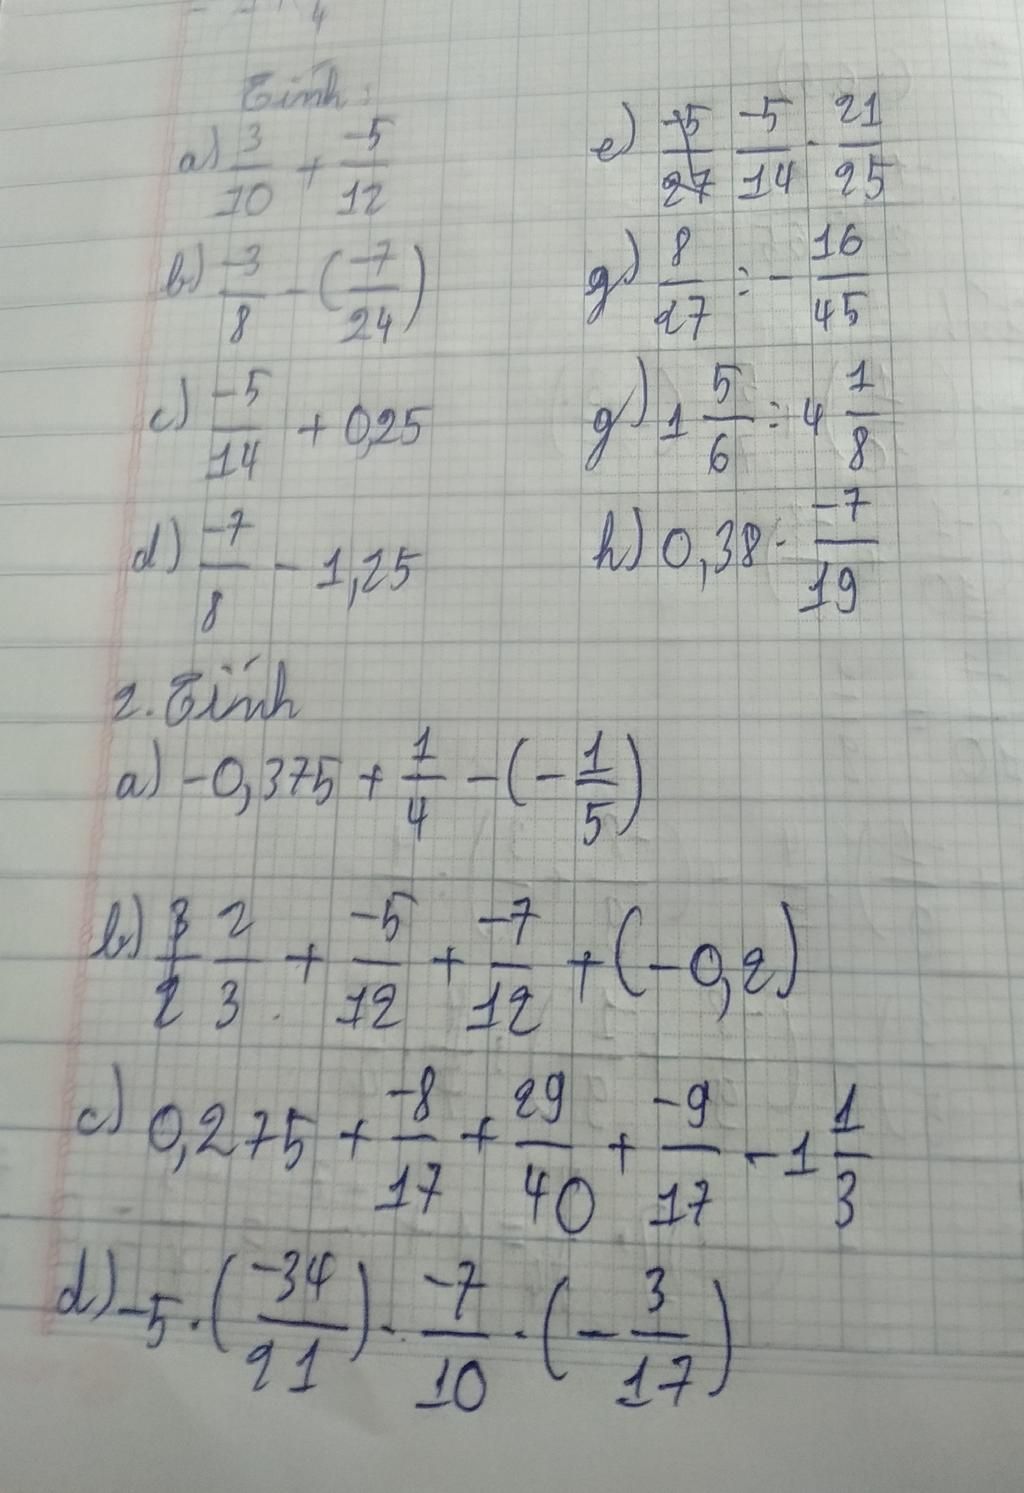 4
Tính:
a) 3/10 + -5/12
b) -3/8 - (-7/24)
c) -5/14 + 0,25
d) -7/8 - 1,25
e) -5/14 . 21/25
g) 8/27 : - 16/45
g) 1 5/6 : 4 1/8
h) 0,38 . -7/19
2. Tính
a) -0,375 + 1/4 - (- 1/5)
b) 2/3 + -5/12 + -7/12 + (-0,2)
c) 0,275 + -8/17 + 29/40 + -9/17 - 1 1/3
d) -5 . (-34/21) . -7/10 . (- 3/17)